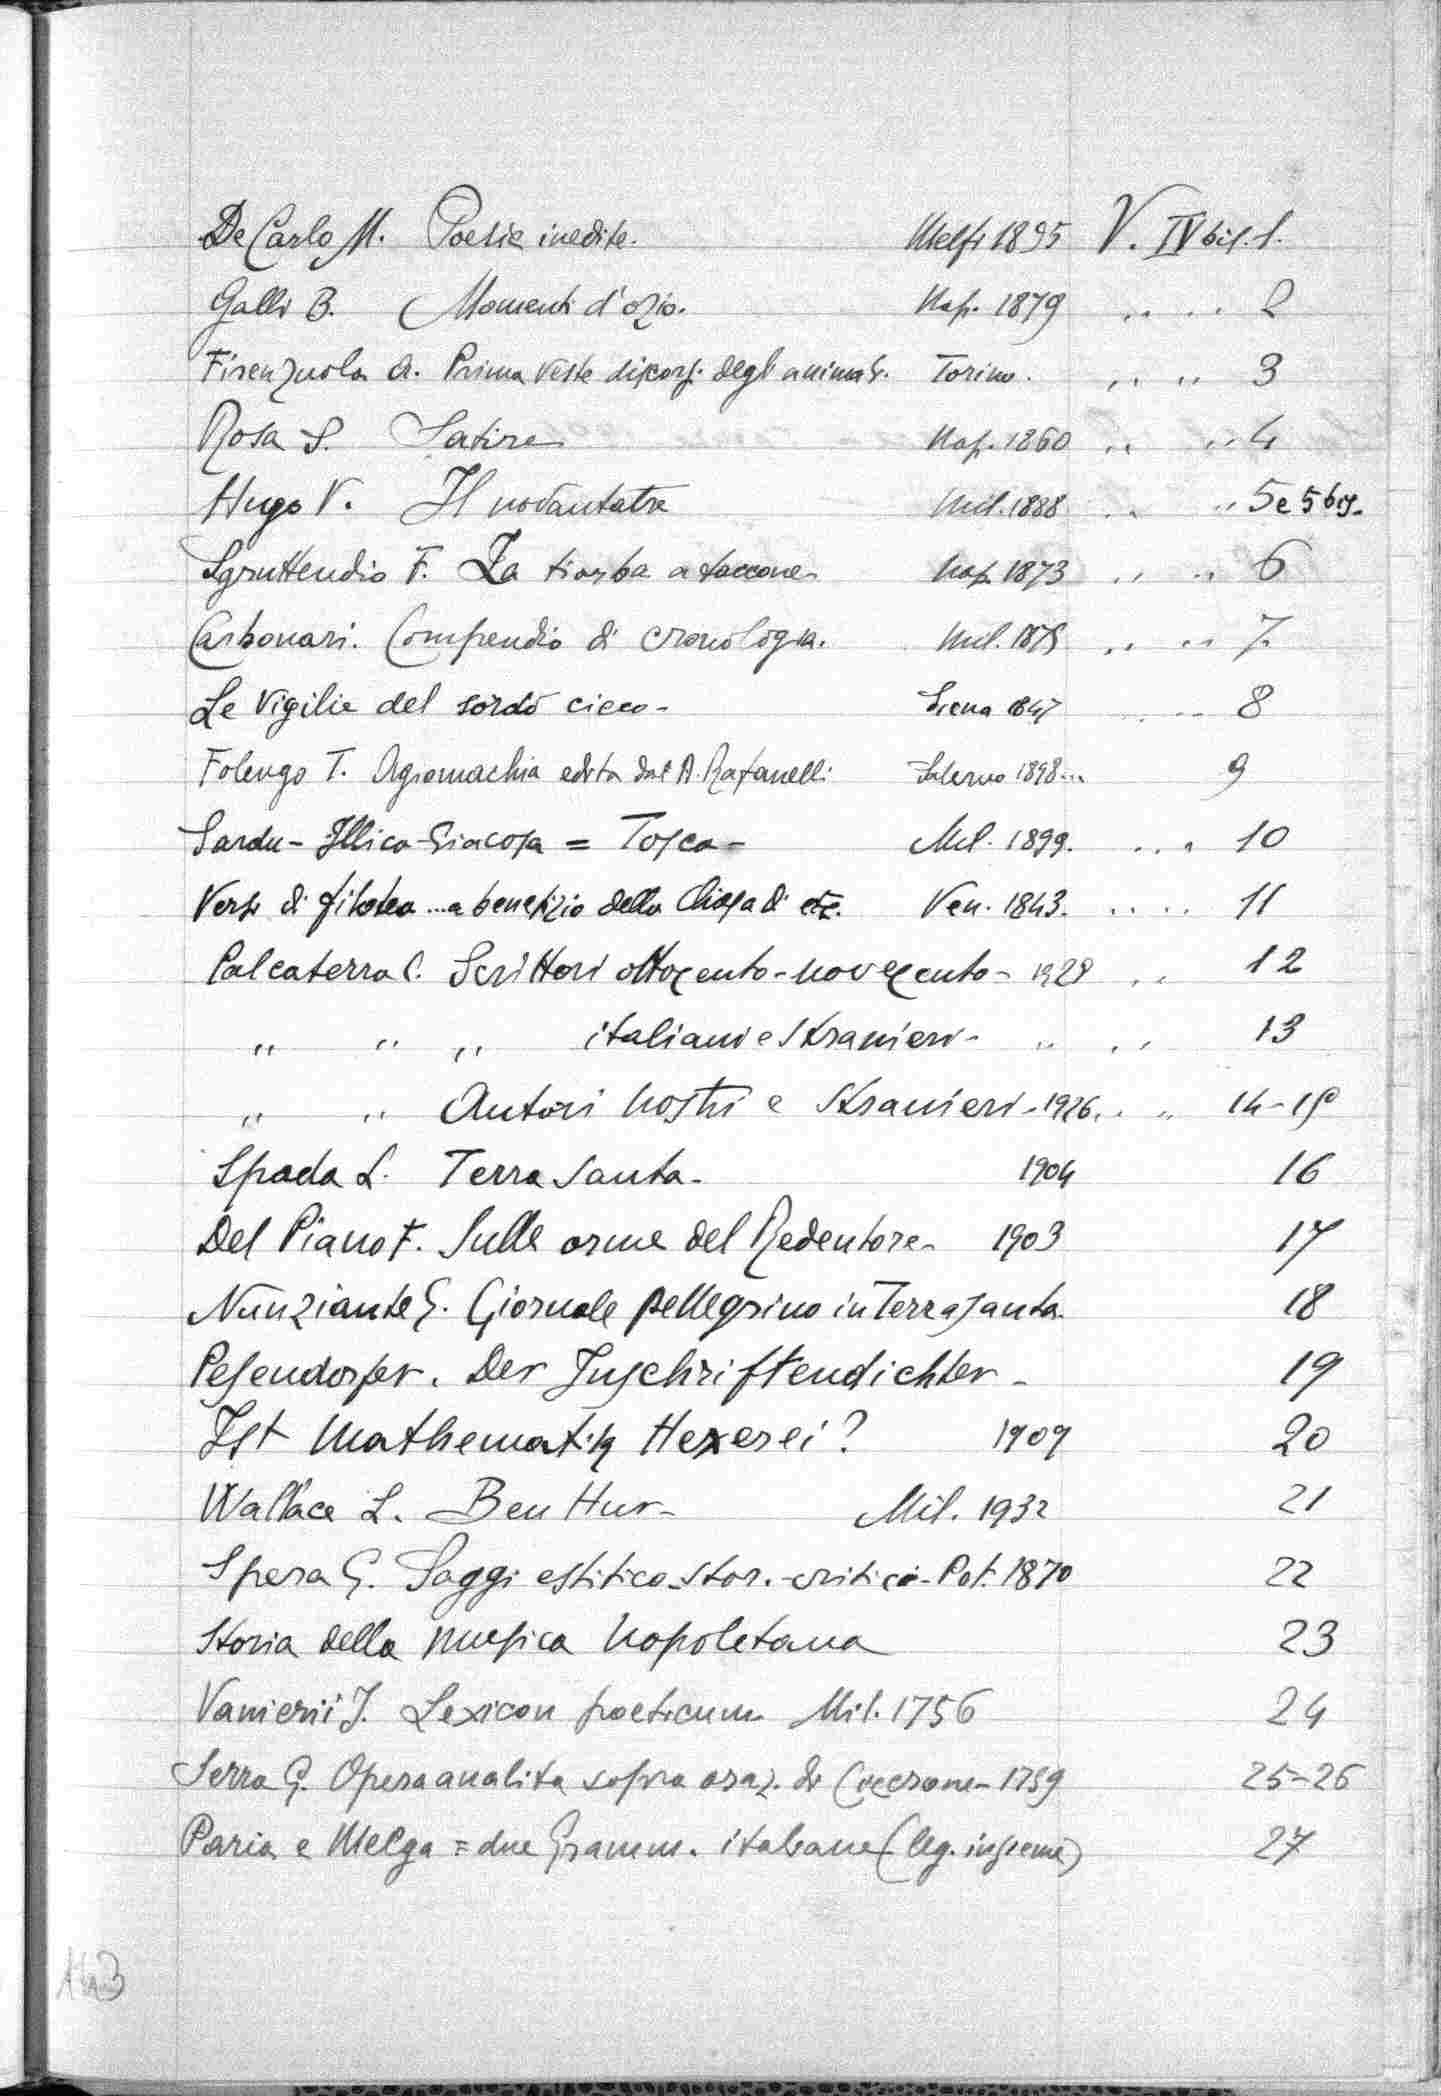 De Carlo M. Poesie inedite. Melfi 1895 V. IV bis. 1.
Galli B. Momenti d'ozio. Nap. 1879 .. .. 2
Firenzuola A. Prima veste discors. degli animali. Torino. .. .. 3
Rosa S. Satire Nap. 1860 .. .. 4
Hugo V. Il novantatre Mil. 1888 .. .. 5 e 5 bis.
Sgruttendio F. La tiorba a taccone Nap. 1873 .. .. 6
Carbonari. Compendio di cronologia. Mil. 1875 .. .. 7
Le Vigilie del sordo cieco - Siena 1847 .. .. 8
Folengo T. Agiomachia edita dal A. Rafanelli Salerno 1898 ... 9
Sardu - Illica - Giacosa = Tosca - Mil. 1899. .. . 10
Versi di filotea ... a benefizio della Chiesa di etc. Ven. 1843. .. .. 11
Palcaterra C. Scrittori ottocento - novecento - 1929 .. 12
,, ,, ,, italiani e stranieri - ,, .. 13
,, ,, Autori nostri e stranieri - 1926. . ,, 14-15
Spada L. Terra Santa - 1904 16
Del Piano F. Sulle orme del Redentore - 1903 17
Nunziante G. Giornale pellegrino in Terrasanta. 18
Pesendorfer. Der Inschriftendichter - 19
Ist Mathematik Hexerei? 1909 20
Wallace L. Ben Hur - Mil. 1932 21
Spera G. Saggi estitico - stor. - critici - Pot. 1870 22
Storia della musica napoletana 23
Vanierii J. Lexicon poeticum Mil. 1756 24
Serra G. Opera analita sopra oraz. di Cicerone - 1759 25-26
Paria e Melga = due Gramm. italiane (leg. insieme) 27
143